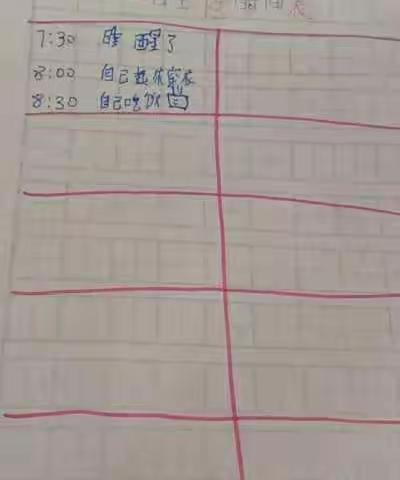 时间表
7:30 睡醒了
8:00 自己起床穿衣
8:30 自己吃饭